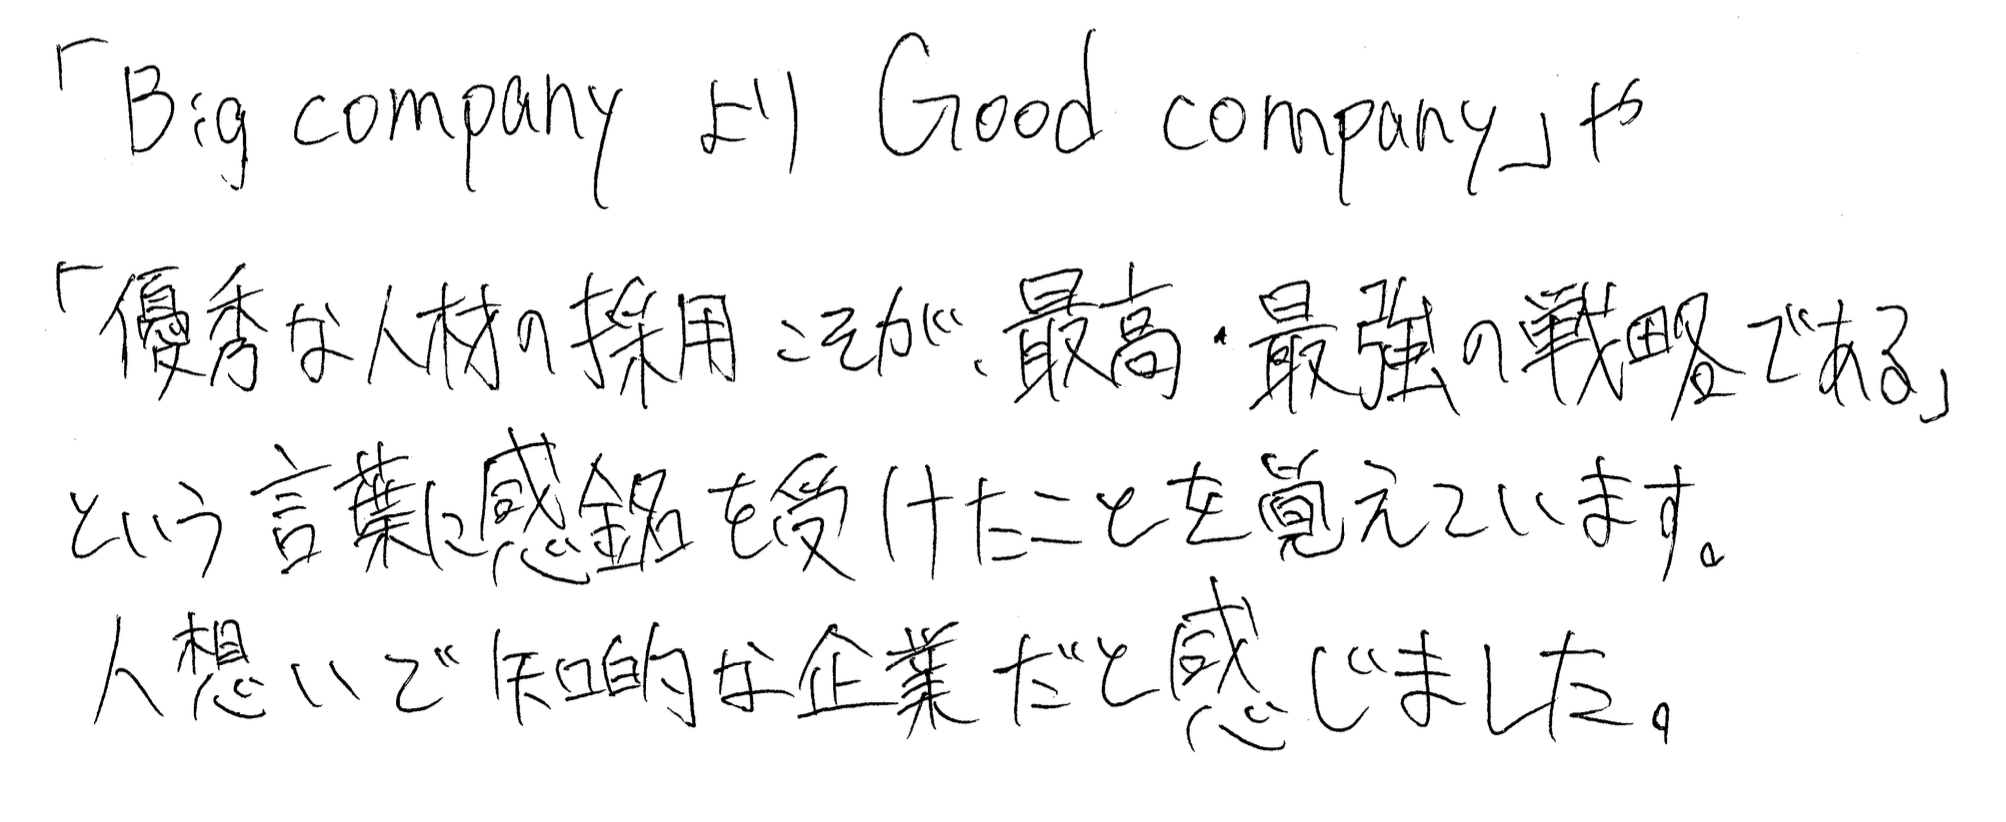 「Big company より Good company」や
「優秀な人材の採用こそが、最高・最強の戦略である」
という言葉に感銘を受けたことを覚えています。
人想いで知的な企業だと感じました。